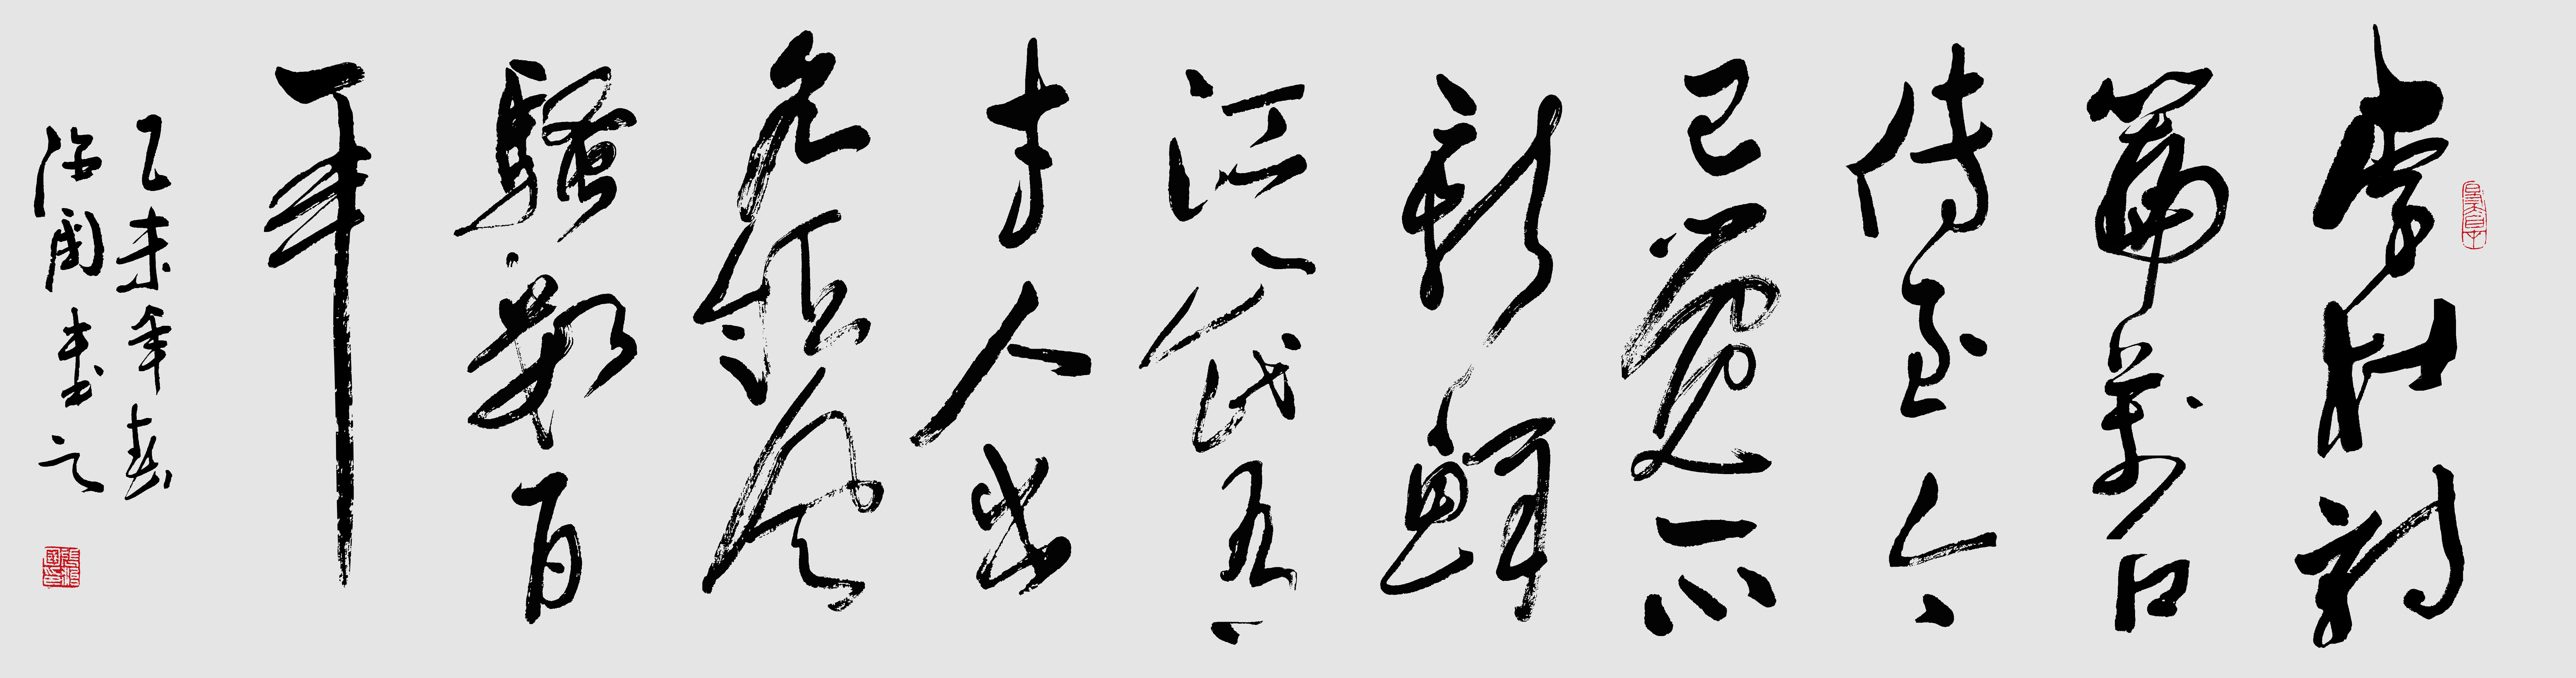 李杜詩
篇萬口
傳至今
已覺不
新鮮
江山代有
才人出
各領風
騷數百
年
乙未年春
國書之